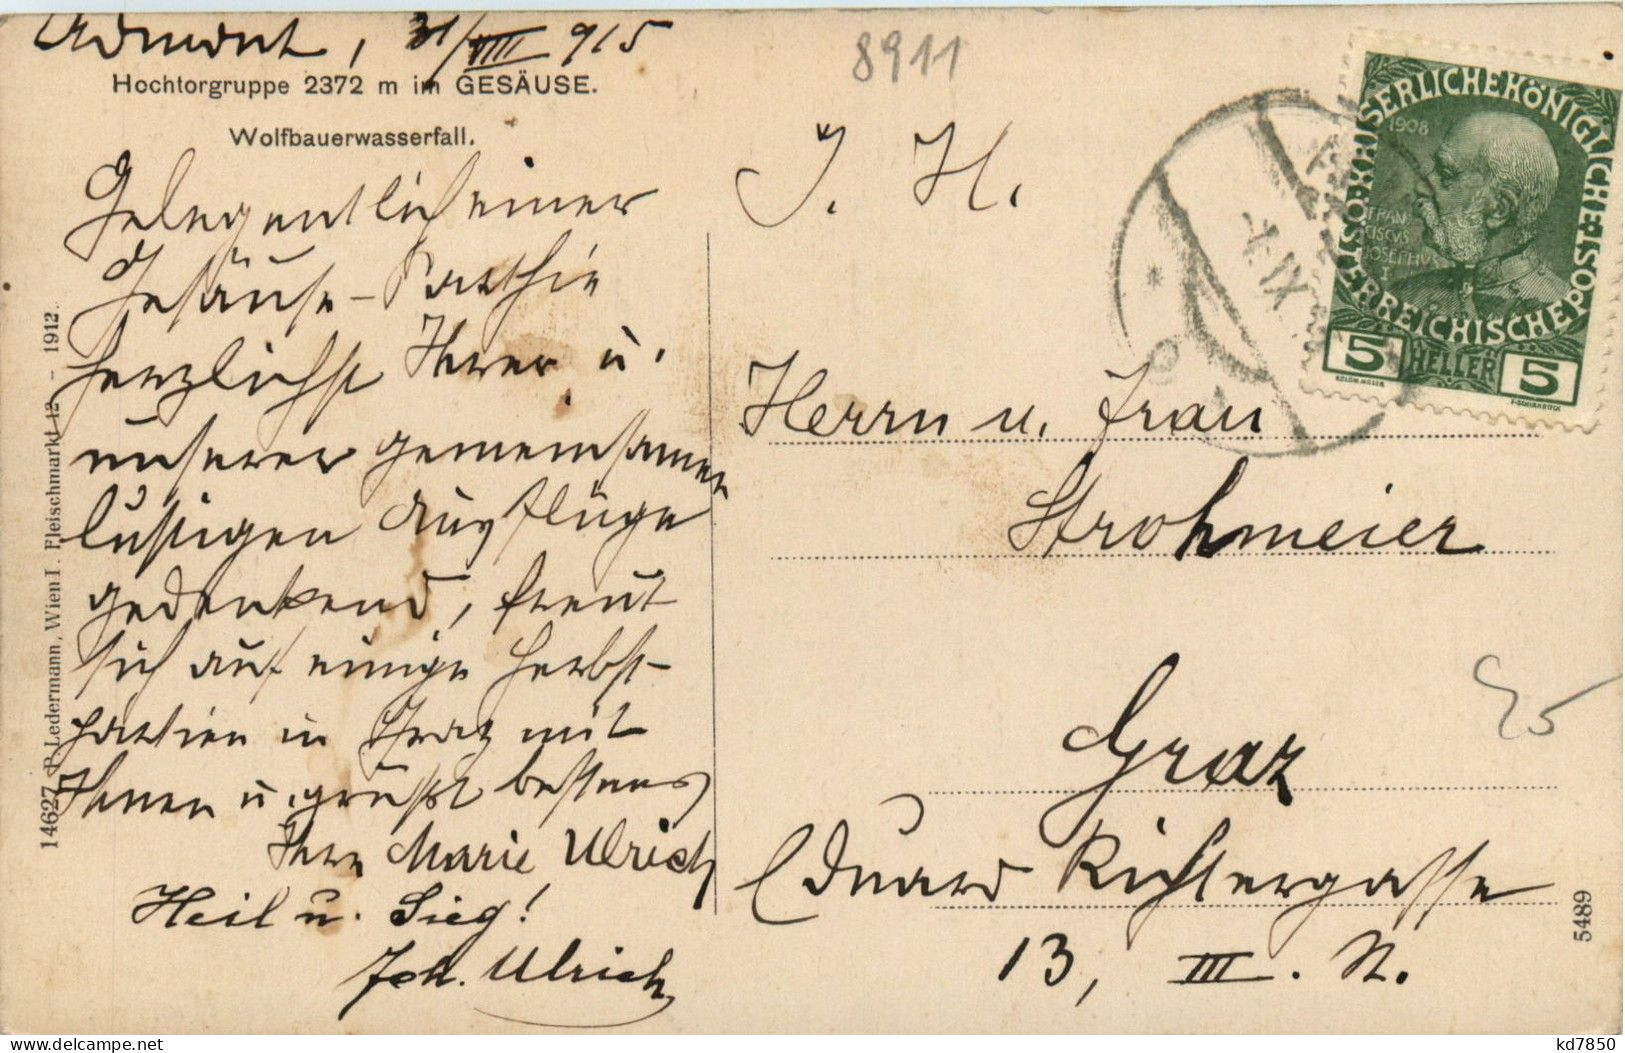 Admont, 31/VIII 915
Hochtorgruppe 2372 m im GESÄUSE.
Wolfbauerwasserfall.
Gelegentlich einer
Gesäuse-Parthie
herzlichst Ihrer u.
unserer gemeinsamen
lustigen Ausflüge
gedenkend, freut
sich auf einige Herbst-
partien in Graz mit
Ihnen u. grüßt bestens
Ihre Marie Ulrich
Heil u. Sieg!
Joh. Ulrich
14627 P. Ledermann, Wien I. Fleischmarkt 12 - 1912.
8911
I. H.
Herrn u. Frau
Strohmeier
Graz
Eduard Richtergasse
13, III. St.
5489
KAISERLICHE KÖNIGLICHE ÖSTERREICHISCHE POST
1908
FRAN
CISCVS
JOSEPHVS
I
5 HELLER 5
IX
kd7850